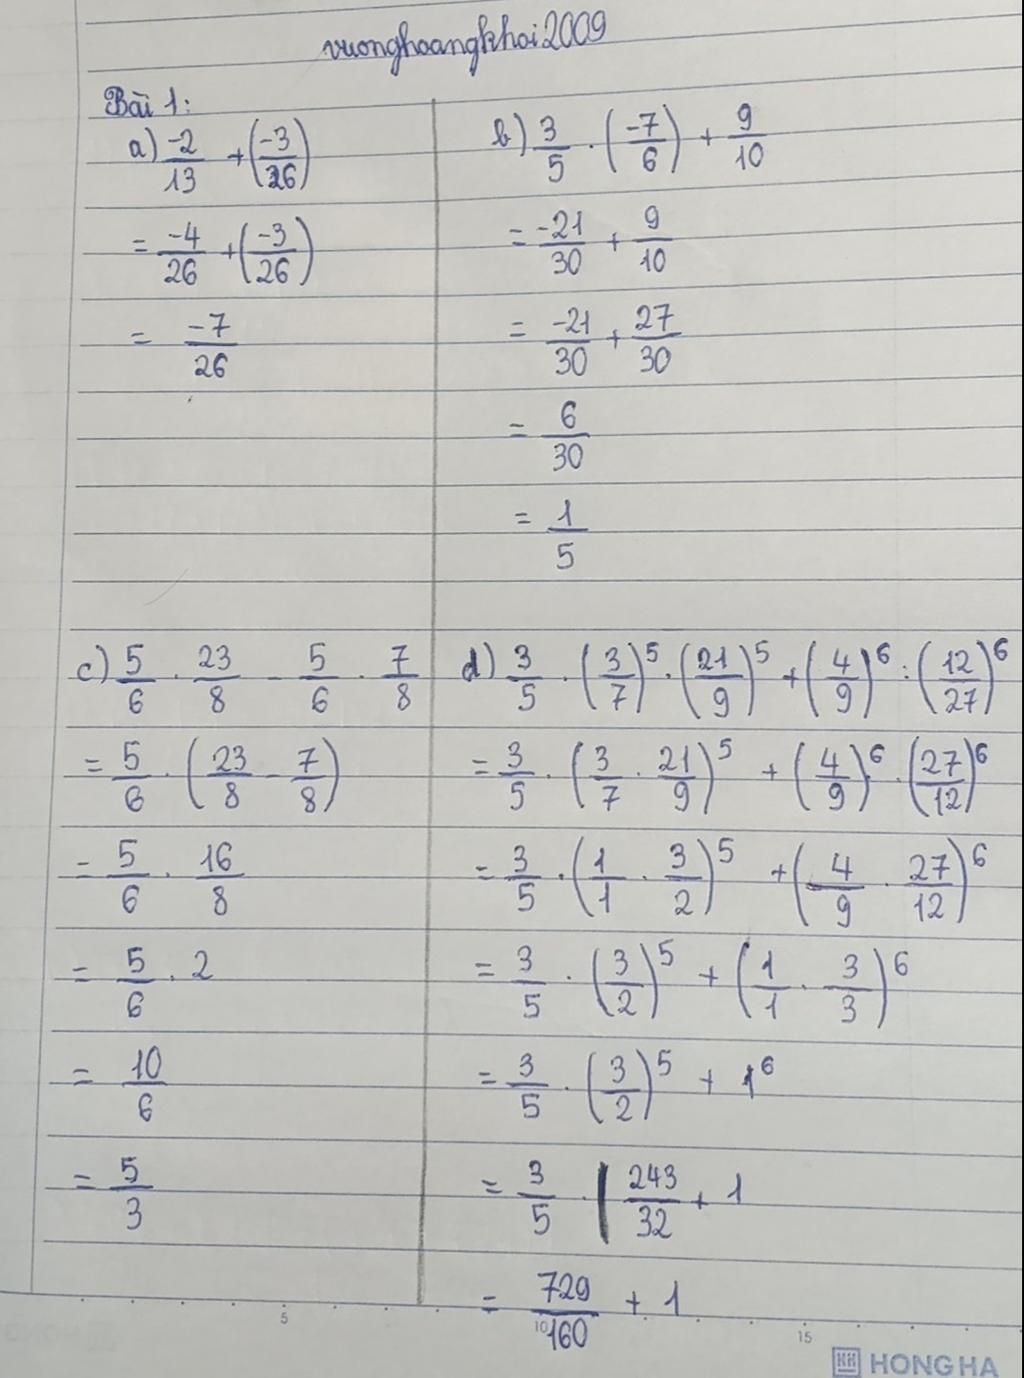 vuonghoangkhoi2009
Bài 1:
a) -2/13 + (-3/26)
= -4/26 + (-3/26)
= -7/26
b) 3/5 . (-7/6) + 9/10
= -21/30 + 9/10
= -21/30 + 27/30
= 6/30
= 1/5
c) 5/6 . 23/8 - 5/6 . 7/8
= 5/6 . (23/8 - 7/8)
= 5/6 . 16/8
= 5/6 . 2
= 10/6
= 5/3
d) 3/5 . (3/7)^5 . (21/9)^5 + (4/9)^6 : (12/27)^6
= 3/5 . (3/7 . 21/9)^5 + (4/9)^6 . (27/12)^6
= 3/5 . (1/1 . 3/2)^5 + (4/9 . 27/12)^6
= 3/5 . (3/2)^5 + (1/1 . 3/3)^6
= 3/5 . (3/2)^5 + 1^6
= 3/5 . 243/32 + 1
= 729/160 + 1
5 10 15
HONG HA